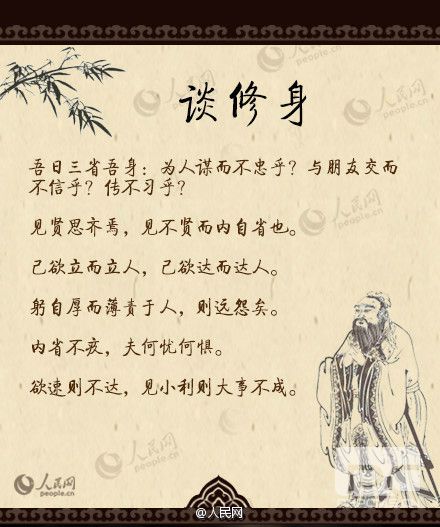 谈修身
吾日三省吾身：为人谋而不忠乎？与朋友交而
不信乎？传不习乎？
见贤思齐焉，见不贤而内自省也。
己欲立而立人，己欲达而达人。
躬自厚而薄责于人，则远怨矣。
内省不疚，夫何忧何惧。
欲速则不达，见小利则大事不成。
人民网
people.cn
人民网
people.cn
人民网
people.cn
人民网
people.cn
人民网
people.cn
@人民网